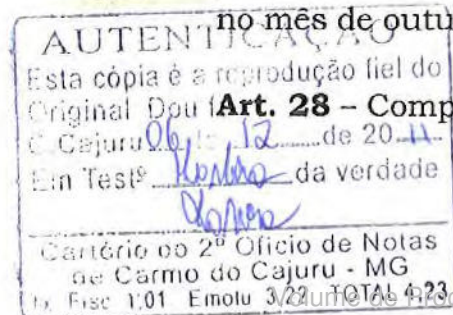 no mês de outu
AUTENTICAÇÃO
Esta cópia é a reprodução fiel do
Original Dou f
Art. 28 – Comp
C. Cajuru 06 de 12 de 20 11
Em Testº da verdade
Cartório do 2º Ofício de Notas
de Carmo do Cajuru - MG
Tx. Fisc 1,01 Emolu 3,22 TOTAL 4,23
Volume de Proc